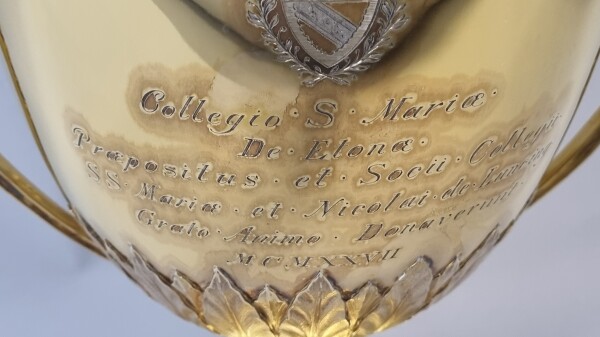 Collegio · S · Mariæ ·
De · Elonæ ·
Præpositus · et · Socii · Collegii
SS · Mariæ · et · Nicolai · de
Grato · Animo · Donaverunt
MCMXXVII